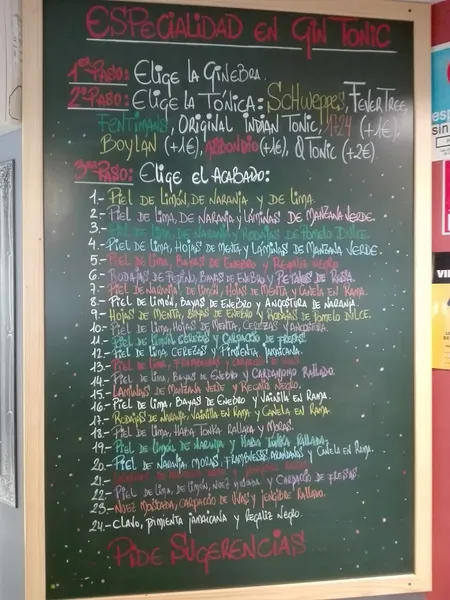 ESPECIALIDAD EN GIN TONIC
1er PASO: ELIGE LA GINEBRA.
2º PASO: ELIGE LA TÓNICA: SCHWEPPES, FEVER TREE,
FENTIMANS, ORIGINAL INDIAN TONIC, 1724 (+1€),
BOYLAN (+1€), (+1€), QTONIC (+2€)
3er PASO: ELIGE EL ACABADO:
1.- PIEL DE LIMÓN, DE NARANJA Y DE LIMA.
2.- PIEL DE LIMA, DE NARANJA Y LÁMINAS DE MANZANA VERDE.
3.- PIEL DE LIMA, DE NARANJA Y RODAJAS DE POMELO DULCE.
4.- PIEL DE LIMA, HOJAS DE MENTA Y LÁMINAS DE MANZANA VERDE.
5.- PIEL DE LIMA, BAYAS DE ENEBRO Y REGALIZ NEGRO.
6.- RODAJAS DE PEPINO, BAYAS DE ENEBRO Y PETALOS DE ROSA.
7.- PIEL DE NARANJA, DE LIMÓN, HOJAS DE MENTA Y CANELA EN RAMA.
8.- PIEL DE LIMÓN, BAYAS DE ENEBRO Y ANGOSTURA DE NARANJA
9.- HOJAS DE MENTA, BAYAS DE ENEBRO Y RODAJAS DE POMELO DULCE.
10.- PIEL DE LIMA, HOJAS DE MENTA, CEREZAS Y ANGOSTURA.
11.- PIEL DE LIMÓN, CEREZAS Y CARPACCIO DE FRESAS.
12.- PIEL DE LIMA CEREZAS Y PIMIENTA JAMAICANA.
13.- PIEL DE LIMA, FRAMBUESAS Y CARPACCIO DE
14.- PIEL DE LIMA, BAYAS DE ENEBRO Y CARDAMOMO RALLADO.
15.- LAMINAS DE MANZANA VERDE Y REGALIZ NEGRO.
16.- PIEL DE LIMA, BAYAS DE ENEBRO Y VAINILLA EN RAMA.
17.- RODAJAS DE NARANJA, VAINILLA EN RAMA Y CANELA EN RAMA.
18.- PIEL DE LIMA, HABA TONKA RALLADA Y MORAS.
19.- PIEL DE LIMÓN DE NARANJA Y HABA TONKA RALLADA.
20.- PIEL DE NARANJA MORAS, FRAMBUESAS, ARANDANOS Y CANELA EN RAMA.
21.-
22.- PIEL DE LIMA, DE LIMÓN, NUEZ MOSCADA Y CARPACCIO DE FRESAS
23.- NUEZ MOSCADA, CARPACCIO DE UVAS Y JENGIBRE RALLADO.
24.- CLAVO, PIMIENTA JAMAICANA Y REGALIZ NEGRO.
PIDE SUGERENCIAS